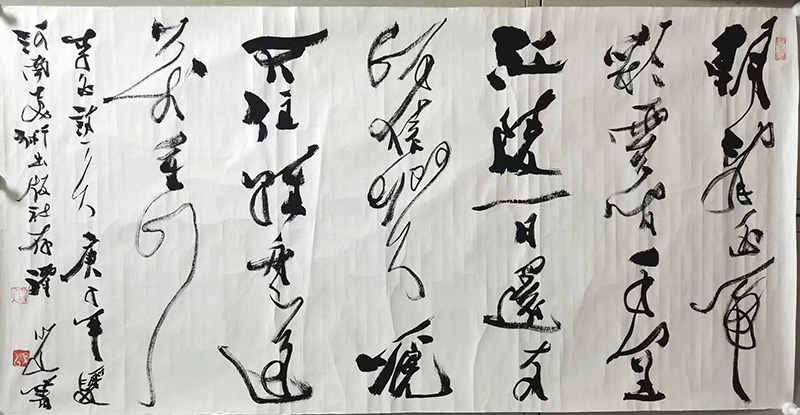 朝辞白帝
彩雲間千里
江陵一日還両
岸猿声啼
不住軽舟已過
万重山
李白詩一首 庚子年夏
河南美术出版社存